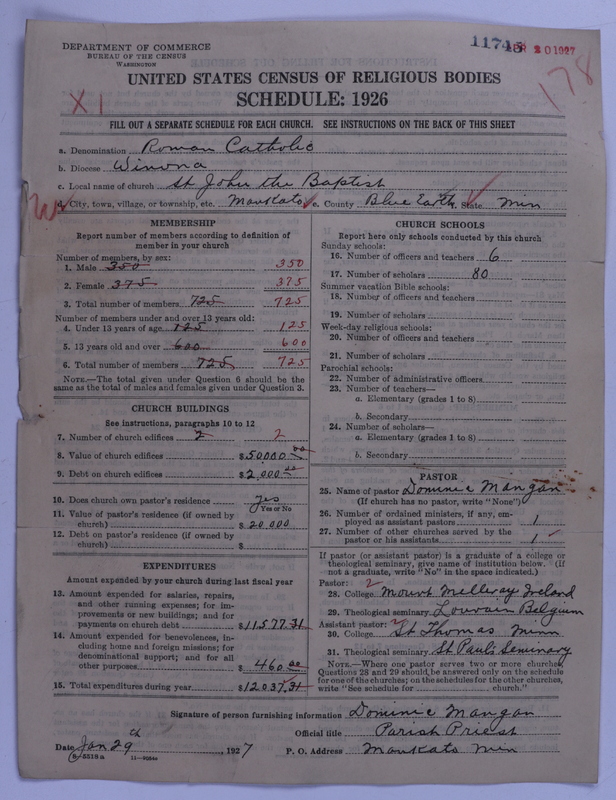 DEPARTMENT OF COMMERCE
BUREAU OF THE CENSUS
WASHINGTON
11745 APR 20 1927
178
UNITED STATES CENSUS OF RELIGIOUS BODIES
SCHEDULE: 1926
X1
FILL OUT A SEPARATE SCHEDULE FOR EACH CHURCH. SEE INSTRUCTIONS ON THE BACK OF THIS SHEET
a. Denomination Roman Catholic
b. Diocese Winona
c. Local name of church St John the Baptist
d. City, town, village, or township, etc. Mankato e. County Blue Earth f. State Min
MEMBERSHIP
Report number of members according to definition of
member in your church
Number of members, by sex:
1. Male 350 350
2. Female 375 375
3. Total number of members 725 725
Number of members under and over 13 years old:
4. Under 13 years of age 125 125
5. 13 years old and over 600 600
6. Total number of members 725 725
NOTE.—The total given under Question 6 should be the
same as the total of males and females given under Question 3.
CHURCH BUILDINGS
See instructions, paragraphs 10 to 12
7. Number of church edifices 2 2
8. Value of church edifices $50000.00
9. Debt on church edifices $2,000.00
10. Does church own pastor's residence yes
Yes or No
11. Value of pastor's residence (if owned by
church) $20.000
12. Debt on pastor's residence (if owned by
church) $
EXPENDITURES
Amount expended by your church during last fiscal year
13. Amount expended for salaries, repairs,
and other running expenses; for im-
provements or new buildings; and for
payments on church debt $11577.31
14. Amount expended for benevolences, in-
cluding home and foreign missions; for
denominational support; and for all
other purposes $460.00
15. Total expenditures during year $12037.31
CHURCH SCHOOLS
Report here only schools conducted by this church
Sunday schools:
16. Number of officers and teachers 6
17. Number of scholars 80
Summer vacation Bible schools:
18. Number of officers and teachers
19. Number of scholars
Week-day religious schools:
20. Number of officers and teachers
21. Number of scholars
Parochial schools:
22. Number of administrative officers
23. Number of teachers—
a. Elementary (grades 1 to 8)
b. Secondary
24. Number of scholars—
a. Elementary (grades 1 to 8)
b. Secondary
PASTOR
25. Name of pastor Dominic Mangan
(If church has no pastor, write "None")
26. Number of ordained ministers, if any, em-
ployed as assistant pastors 1
27. Number of other churches served by the
pastor or his assistants 1
If pastor (or assistant pastor) is a graduate of a college or
theological seminary, give name of institution below. (If
not a graduate, write "No" in the space indicated.)
Pastor: 2
28. College Mount Melleray Ireland
29. Theological seminary Louvain Belgium
Assistant pastor: 2
30. College St Thomas Minn
31. Theological seminary St Pauls Seminary
NOTE.—Where one pastor serves two or more churches,
Questions 28 and 29 should be answered only on the schedule
for one of the churches; on the schedules for the other churches,
write "See schedule for church."
Signature of person furnishing information Dominic Mangan
Official title Parish Priest
Date Jan 29th, 1927 P. O. Address Mankato Min
8-5518a